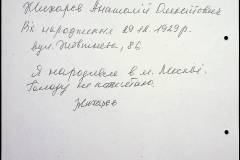 Жихарєв Анатолій Олексійович
Рік народження 29.12.1929 р.
вул. Жовтнева, 86
Я народився в м. Москві.
Голоду не пам'ятаю.
Жихарєв